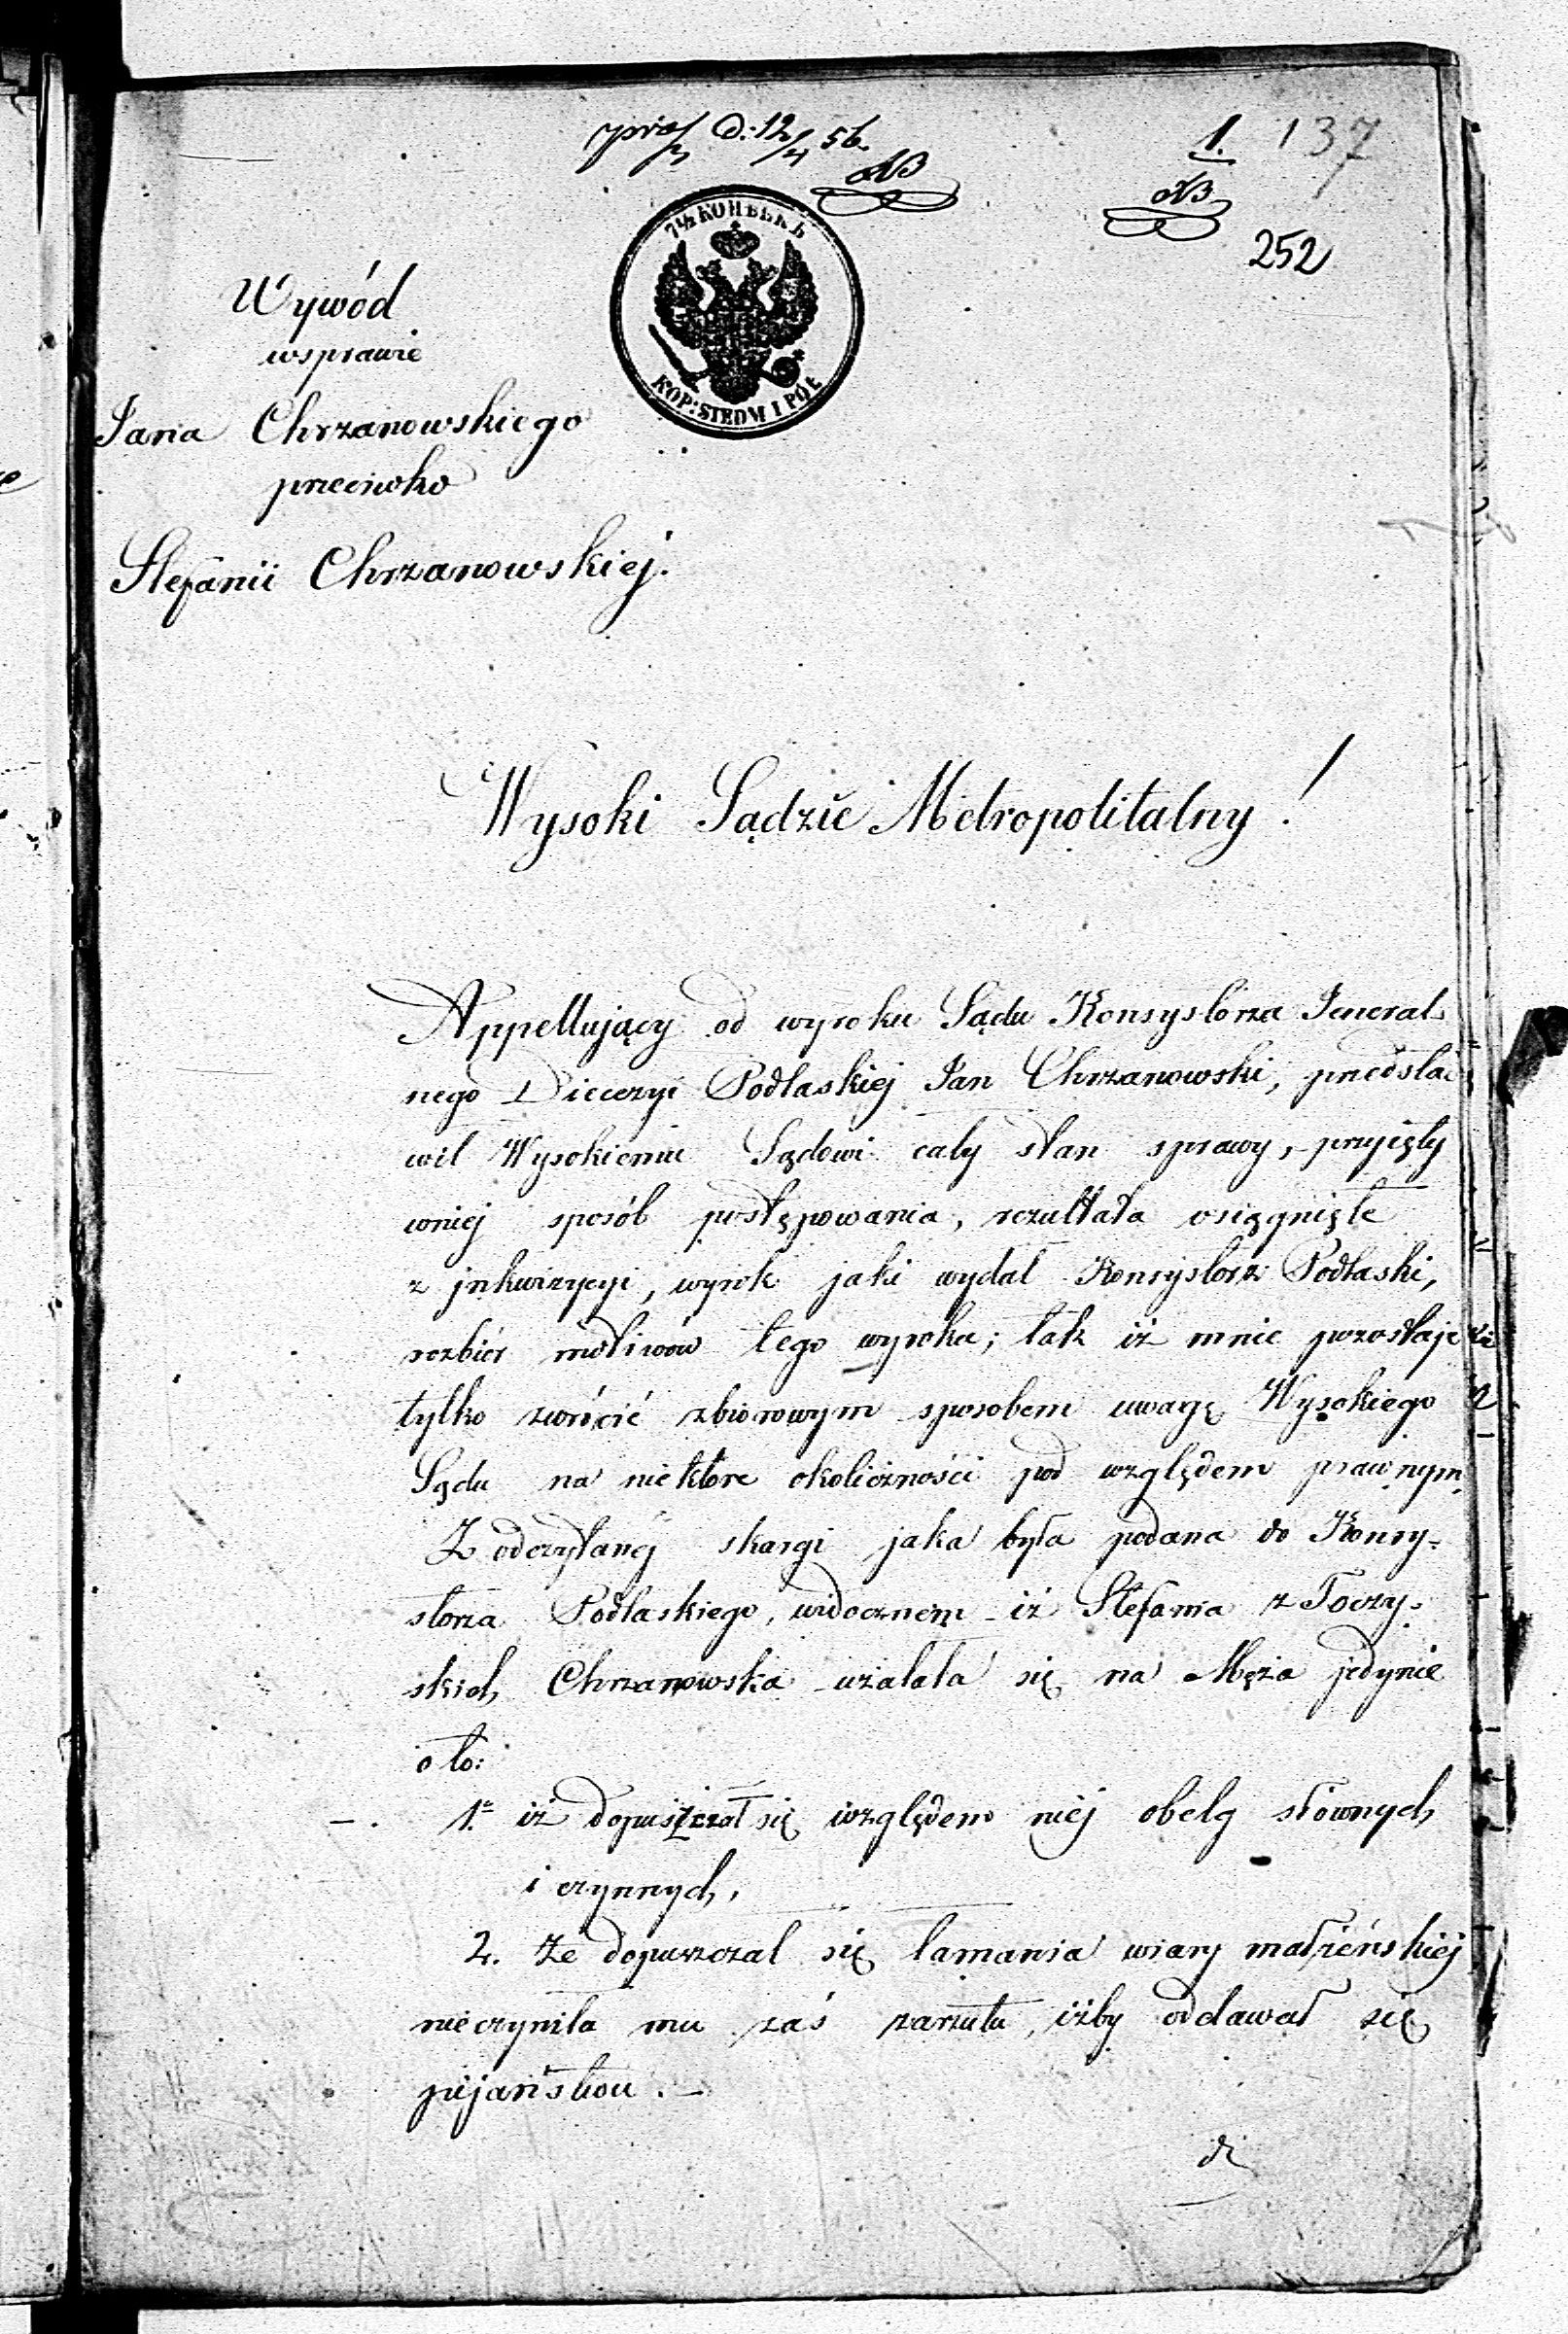 d: 12/4 56.
1. 137
252
7½ КОПѢЕКЪ
KOP: SIEDM I PÓŁ
Wywód
wsprawie
Jana Chrzanowskiego
przeciwko
Stefanii Chrzanowskiej.
Wysoki Sądzie Metropolitalny!
Appellujący od wyroku Sądu Konsystorza Jeneral
nego Diecezyi Podlaskiej Jan Chrzanowski, przedsta
wił Wysokiemu Sądowi cały stan sprawy, przyięty
wniej sposób postępowania, rezultata osiągnięte
z jnkwizycyi, wyrok jaki wydał Konsystorz Podlaski,
rozbiór motiwów tego wyroku; tak iż mnie pozostaje
tylko zwrócić zbiorowym sposobem uwagę Wysokiego
Sądu na niektóre okoliczności pod względem prawnym
Z odczytanéj skargi jaka była podana do Konsy-
storza Podlaskiego, widocznem iż Stefania z Toczy-
skich Chrzanowska użalała się na Męża jedynie
o to:
1. iż dopuszczał się względem niéj obelg słównych
i czynnych,
2. że dopuszczał się łamania wiary małżeńskiej
nieczyniła mu zaś zarzutu, iżby oddawał się
pijaństwu. —